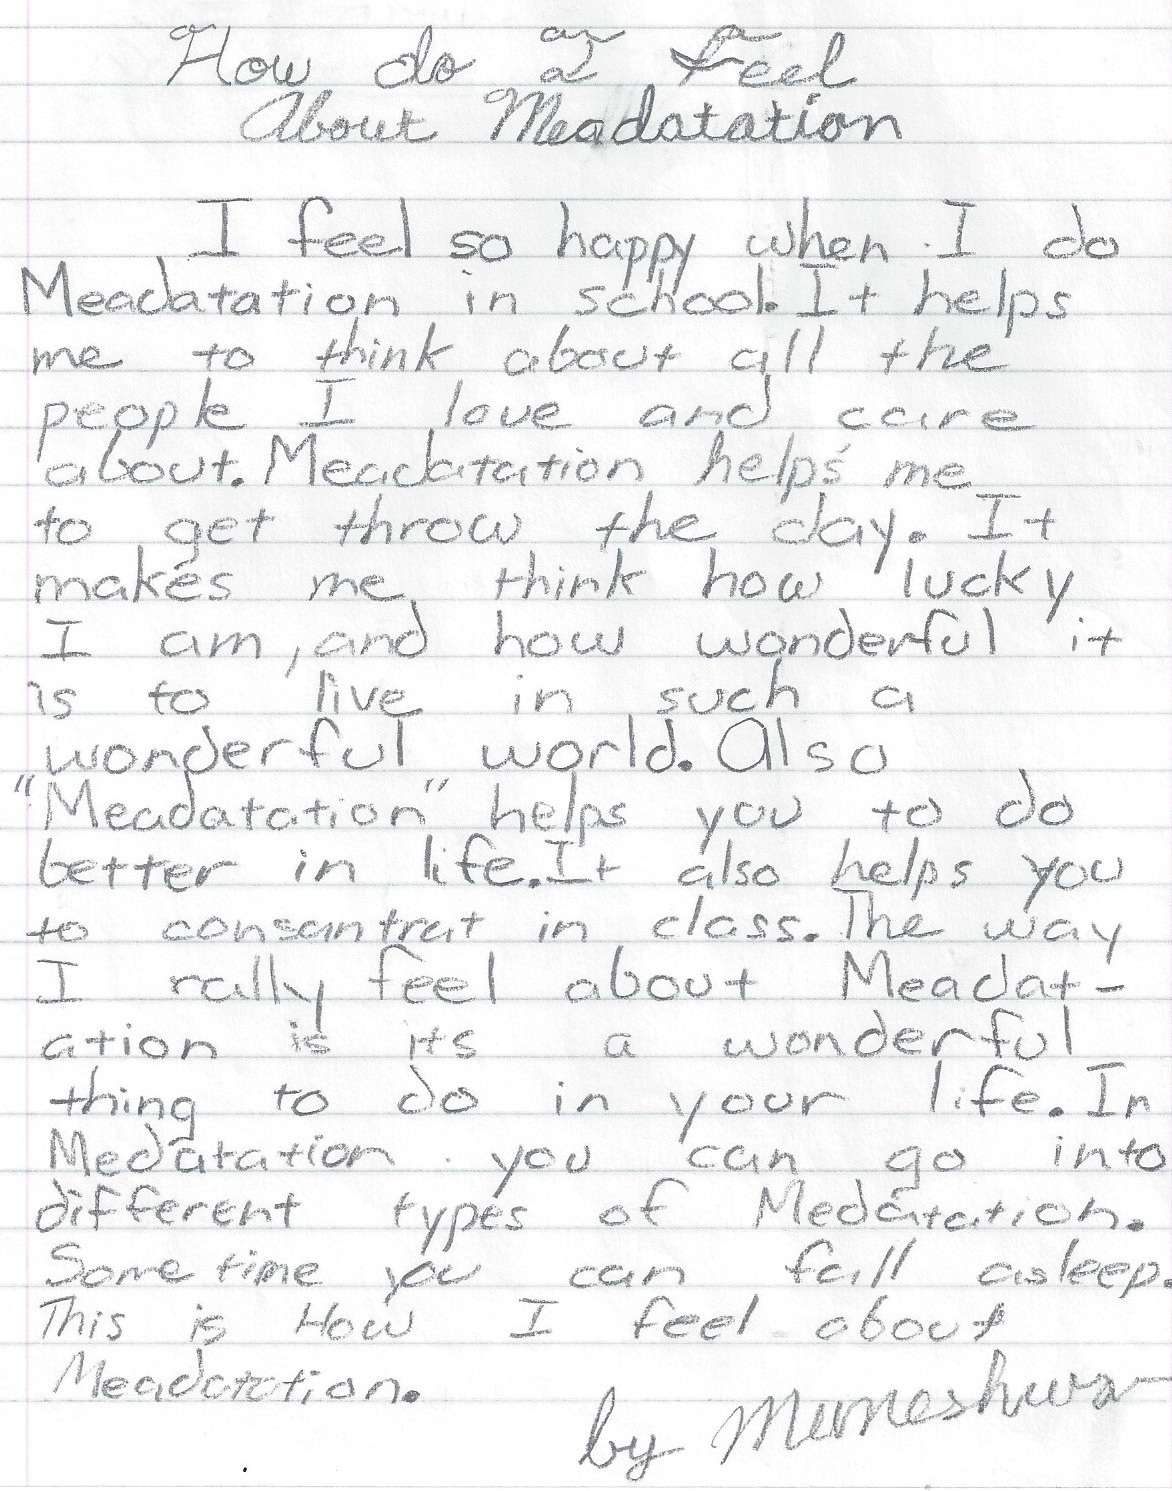 How do I Feel
About Meadatation
I feel so happy when I do
Meadatation in school. It helps
me to think about all the
people I love and care
about. Meadatation helps me
to get throw the day. It
makes me think how lucky
I am, and how wonderful it
is to live in such a
wonderful world. Also
"Meadatation" helps you to do
better in life. It also helps you
to consantrat in class. The way
I rally feel about Meadat-
ation is its a wonderful
thing to do in your life. In
Medatation you can go into
different types of Medatation.
Some time you can fall asleep.
This is How I feel about
Meadatation.
by Muneshwar